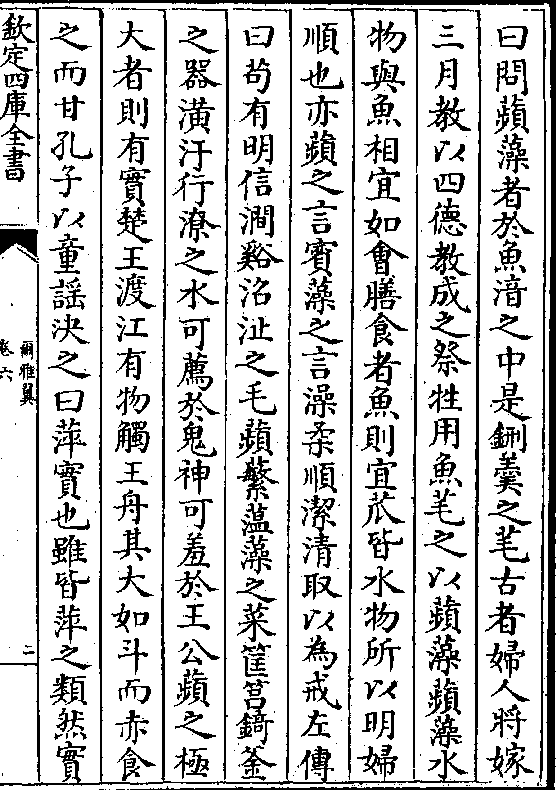 曰問蘋藻者於魚湆之中是鉶羹之芼古者婦人將嫁
三月教以四德教成之祭牲用魚芼之以蘋藻蘋藻水
物與魚相宜如會膳食者魚則宜苽皆水物所以明婦
順也亦蘋之言賓藻之言澡柔順潔清取以為戒左傳
曰茍有明信澗谿沼沚之毛蘋蘩薀藻之菜筐筥錡釜
之器潢汙行潦之水可薦於鬼神可羞於王公蘋之極
大者則有實楚王渡江有物觸王舟其大如斗而赤食
之而甘孔子以童謡決之曰萍實也雖皆萍之類然實
欽定四庫全書
爾雅翼
卷六
二